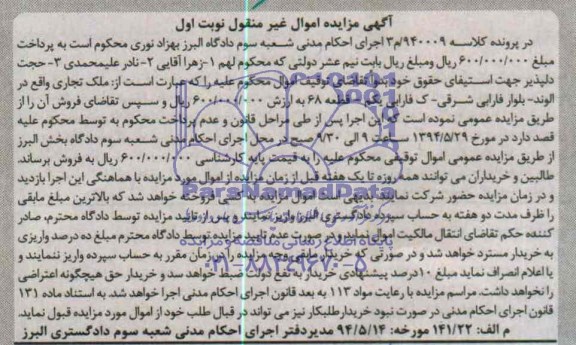 آگهی مزایده اموال غیر منقول نوبت اول
در پرونده کلاسه ۹۴۰۰۰۹/م۳ اجرای احکام مدنی شعبه سوم دادگاه البرز بهزاد نوری محکوم است به پرداخت
مبلغ ۶۰۰/۰۰۰/۰۰۰ ریال ومبلغ ریال بابت نیم عشر دولتی که محکوم لهم ۱-زهرا آقایی ۲-نادر علیمحمدی ۳-حجت
دلپذیر جهت استیفای حقوق خود تقاضای توقیف اموال محکوم علیه را که عبارت است از: ملک تجاری واقع در
الوند- بلوار فارابی شرقی- ک فارابی یکم- قطعه ۶۸ به ارزش ۶۰۰/۰۰۰/۰۰۰ ریال و سپس تقاضای فروش آن را از
طریق مزایده عمومی نموده است که این اجرا پس از طی مراحل قانون و عدم پرداخت محکوم به توسط محکوم علیه
قصد دارد در مورخ ۱۳۹۴/۵/۲۹ ساعت ۹ الی ۹/۳۰ صبح در محل اجرای احکام مدنی شعبه سوم دادگاه بخش البرز
از طریق مزایده عمومی اموال توقیفی محکوم علیه را به قیمت پایه کارشناسی ۶۰۰/۰۰۰/۰۰۰ ریال به فروش برساند.
طالبین و خریداران می توانند همه روزه تا یک هفته قبل از زمان مزایده از اموال مورد مزایده با هماهنگی این اجرا بازدید
و در زمان مزایده حضور شرکت نمایند. بدیهی است اموال مزایده به کسی فروخته خواهد شد که بالاترین مبلغ مابقی
را ظرف مدت دو هفته به حساب سپرده دادگستری البرز واریز نماید و پس از تائید مزایده توسط دادگاه محترم، صادر
کننده حکم تقاضای انتقال مالکیت اموال نماید و در صورت عدم تایید مزایده توسط دادگاه محترم مبلغ ده درصد واریزی
به خریدار مسترد خواهد شد و در صورتی که خریدار مابقی وجه مزایده را در زمان مقرر به حساب سپرده واریز ننمایند و
یا اعلام انصراف نماید مبلغ ۱۰درصد پیشنهادی خریدار به نفع دولت ضبط خواهد سد و خریدار حق هیچگونه اعتراضی
را نخواهد داشت. مراسم مزایده با رعایت مواد ۱۱۳ به بعد قانون اجرای احکام مدنی اجرا خواهد شد. به استناد ماده ۱۳۱
قانون اجرای احکام مدنی در صورت نبود خریدارطلبکار نیز می تواند در قبال طلب خود از اموال مورد مزایده قبول نماید.
م الف: ۱۴۱/۲۲ مورخه: ۹۴/۵/۱۴ مدیردفتر اجرای احکام مدنی شعبه سوم دادگستری البرز
ParsNamadData
پایگاه اطلاع رسانی مناقصه و مزایده
۰۲۱-۸۸۳۴۹۶۷۰-۵